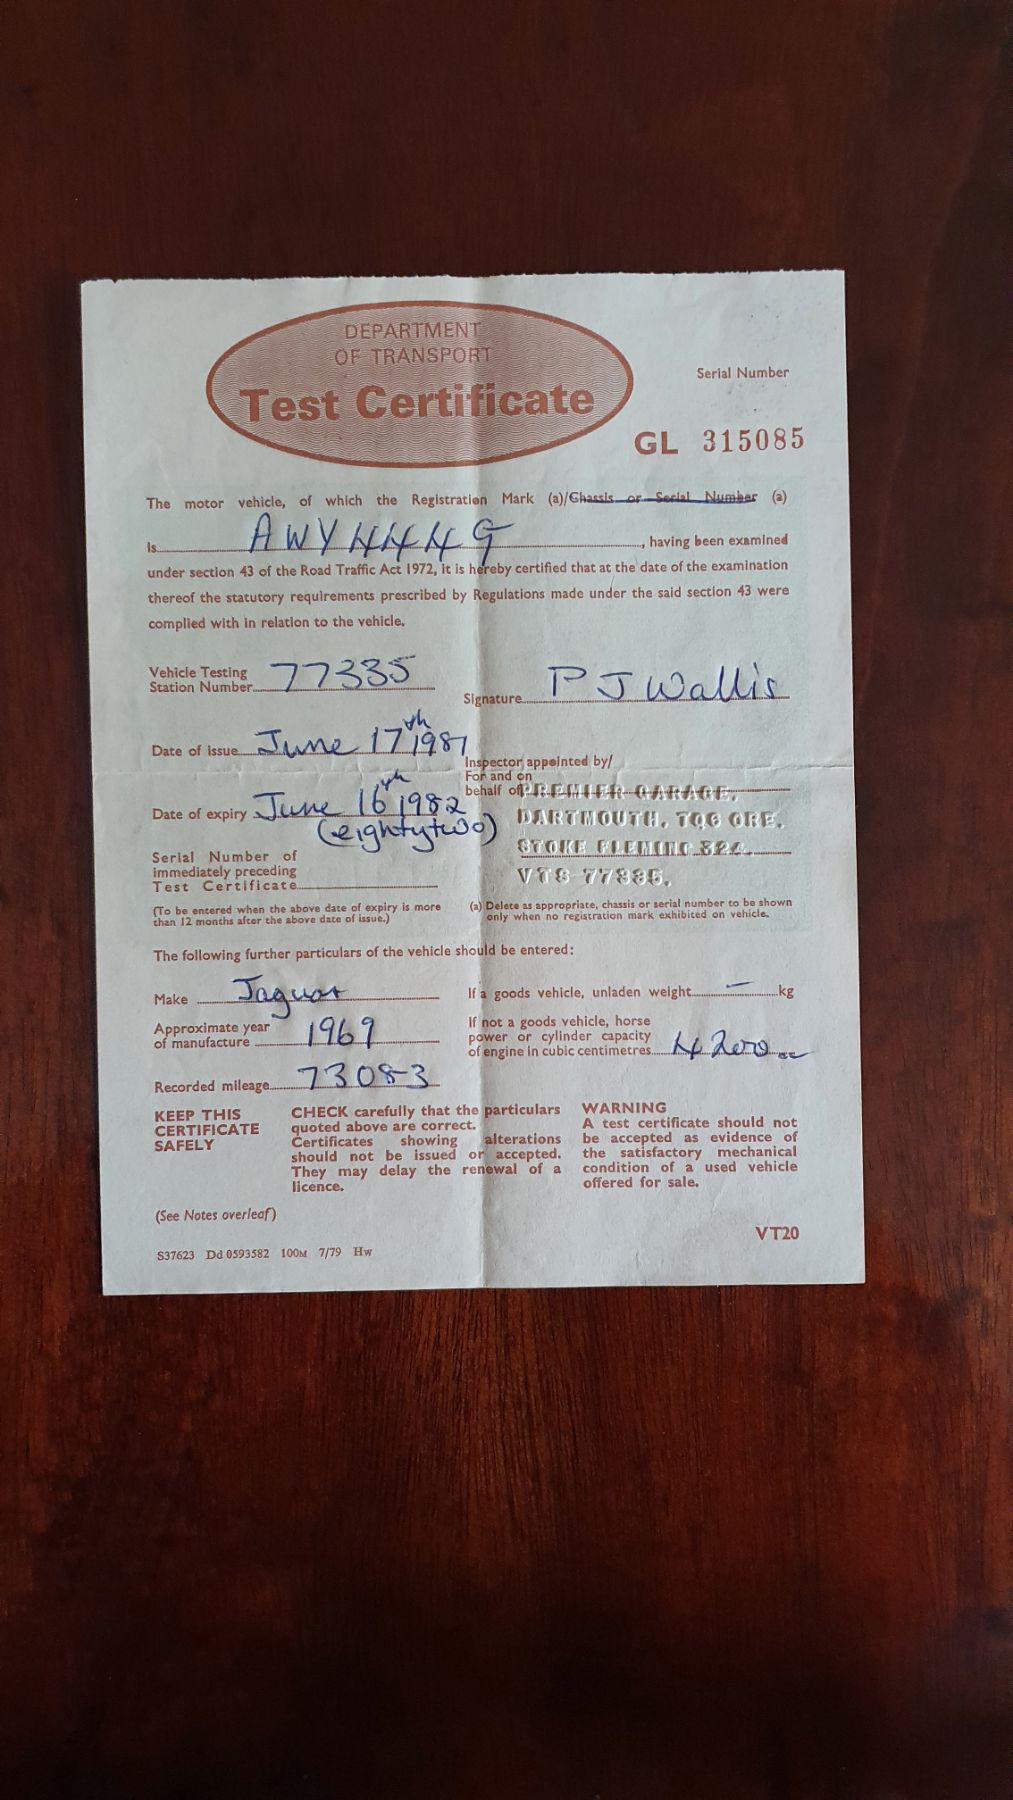 DEPARTMENT
OF TRANSPORT
Test Certificate
Serial Number
GL 315085
The motor vehicle, of which the Registration Mark (a)/Chassis or Serial Number (a)
is AWY 444G, having been examined
under section 43 of the Road Traffic Act 1972, it is hereby certified that at the date of the examination
thereof the statutory requirements prescribed by Regulations made under the said section 43 were
complied with in relation to the vehicle.
Vehicle Testing
Station Number 77335
Signature P J Wallis
Date of issue June 17th 1981
Inspector appointed by/
For and on
behalf of PREMIER GARAGE,
DARTMOUTH, TQ6 0RE.
STOKE FLEMING 324.
VTS 77335.
Date of expiry June 16th 1982
(eightytwo)
Serial Number of
immediately preceding
Test Certificate
(To be entered when the above date of expiry is more
than 12 months after the above date of issue.)
(a) Delete as appropriate, chassis or serial number to be shown
only when no registration mark exhibited on vehicle.
The following further particulars of the vehicle should be entered:
Make Jaguar
If a goods vehicle, unladen weight — kg
Approximate year
of manufacture 1969
If not a goods vehicle, horse
power or cylinder capacity
of engine in cubic centimetres 4200 cc
Recorded mileage 73083
KEEP THIS
CERTIFICATE
SAFELY
CHECK carefully that the particulars
quoted above are correct.
Certificates showing alterations
should not be issued or accepted.
They may delay the renewal of a
licence.
WARNING
A test certificate should not
be accepted as evidence of
the satisfactory mechanical
condition of a used vehicle
offered for sale.
(See Notes overleaf)
VT20
S37623 Dd 0593582 100M 7/79 Hw